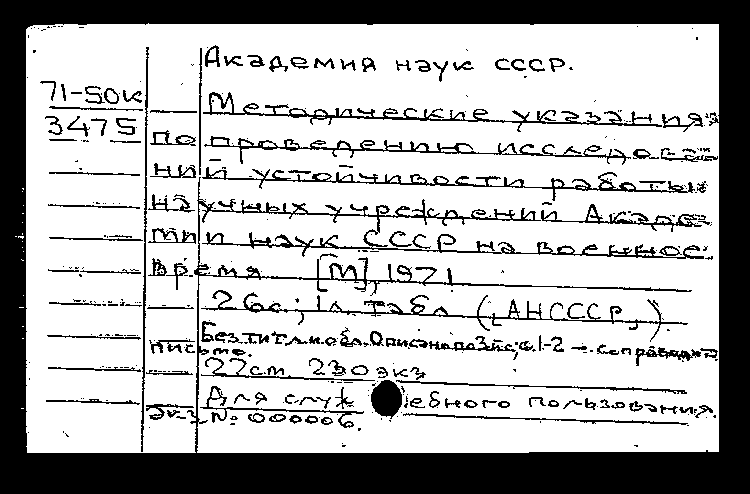 Академия наук СССР.
71-50к
Методические указания
3475
по проведению исследова
ний устойчивости работы
научных учреждений Акаде
мии наук СССР на военное
время [М], 1971
26с.; 1л. табл („АНСССР„).
Без тит.л. и обл. Описано по 3й с; с.1-2 — сопроводит
письмо.
27см. 230экз
Для служ ебного пользования.
экз. № 000006.